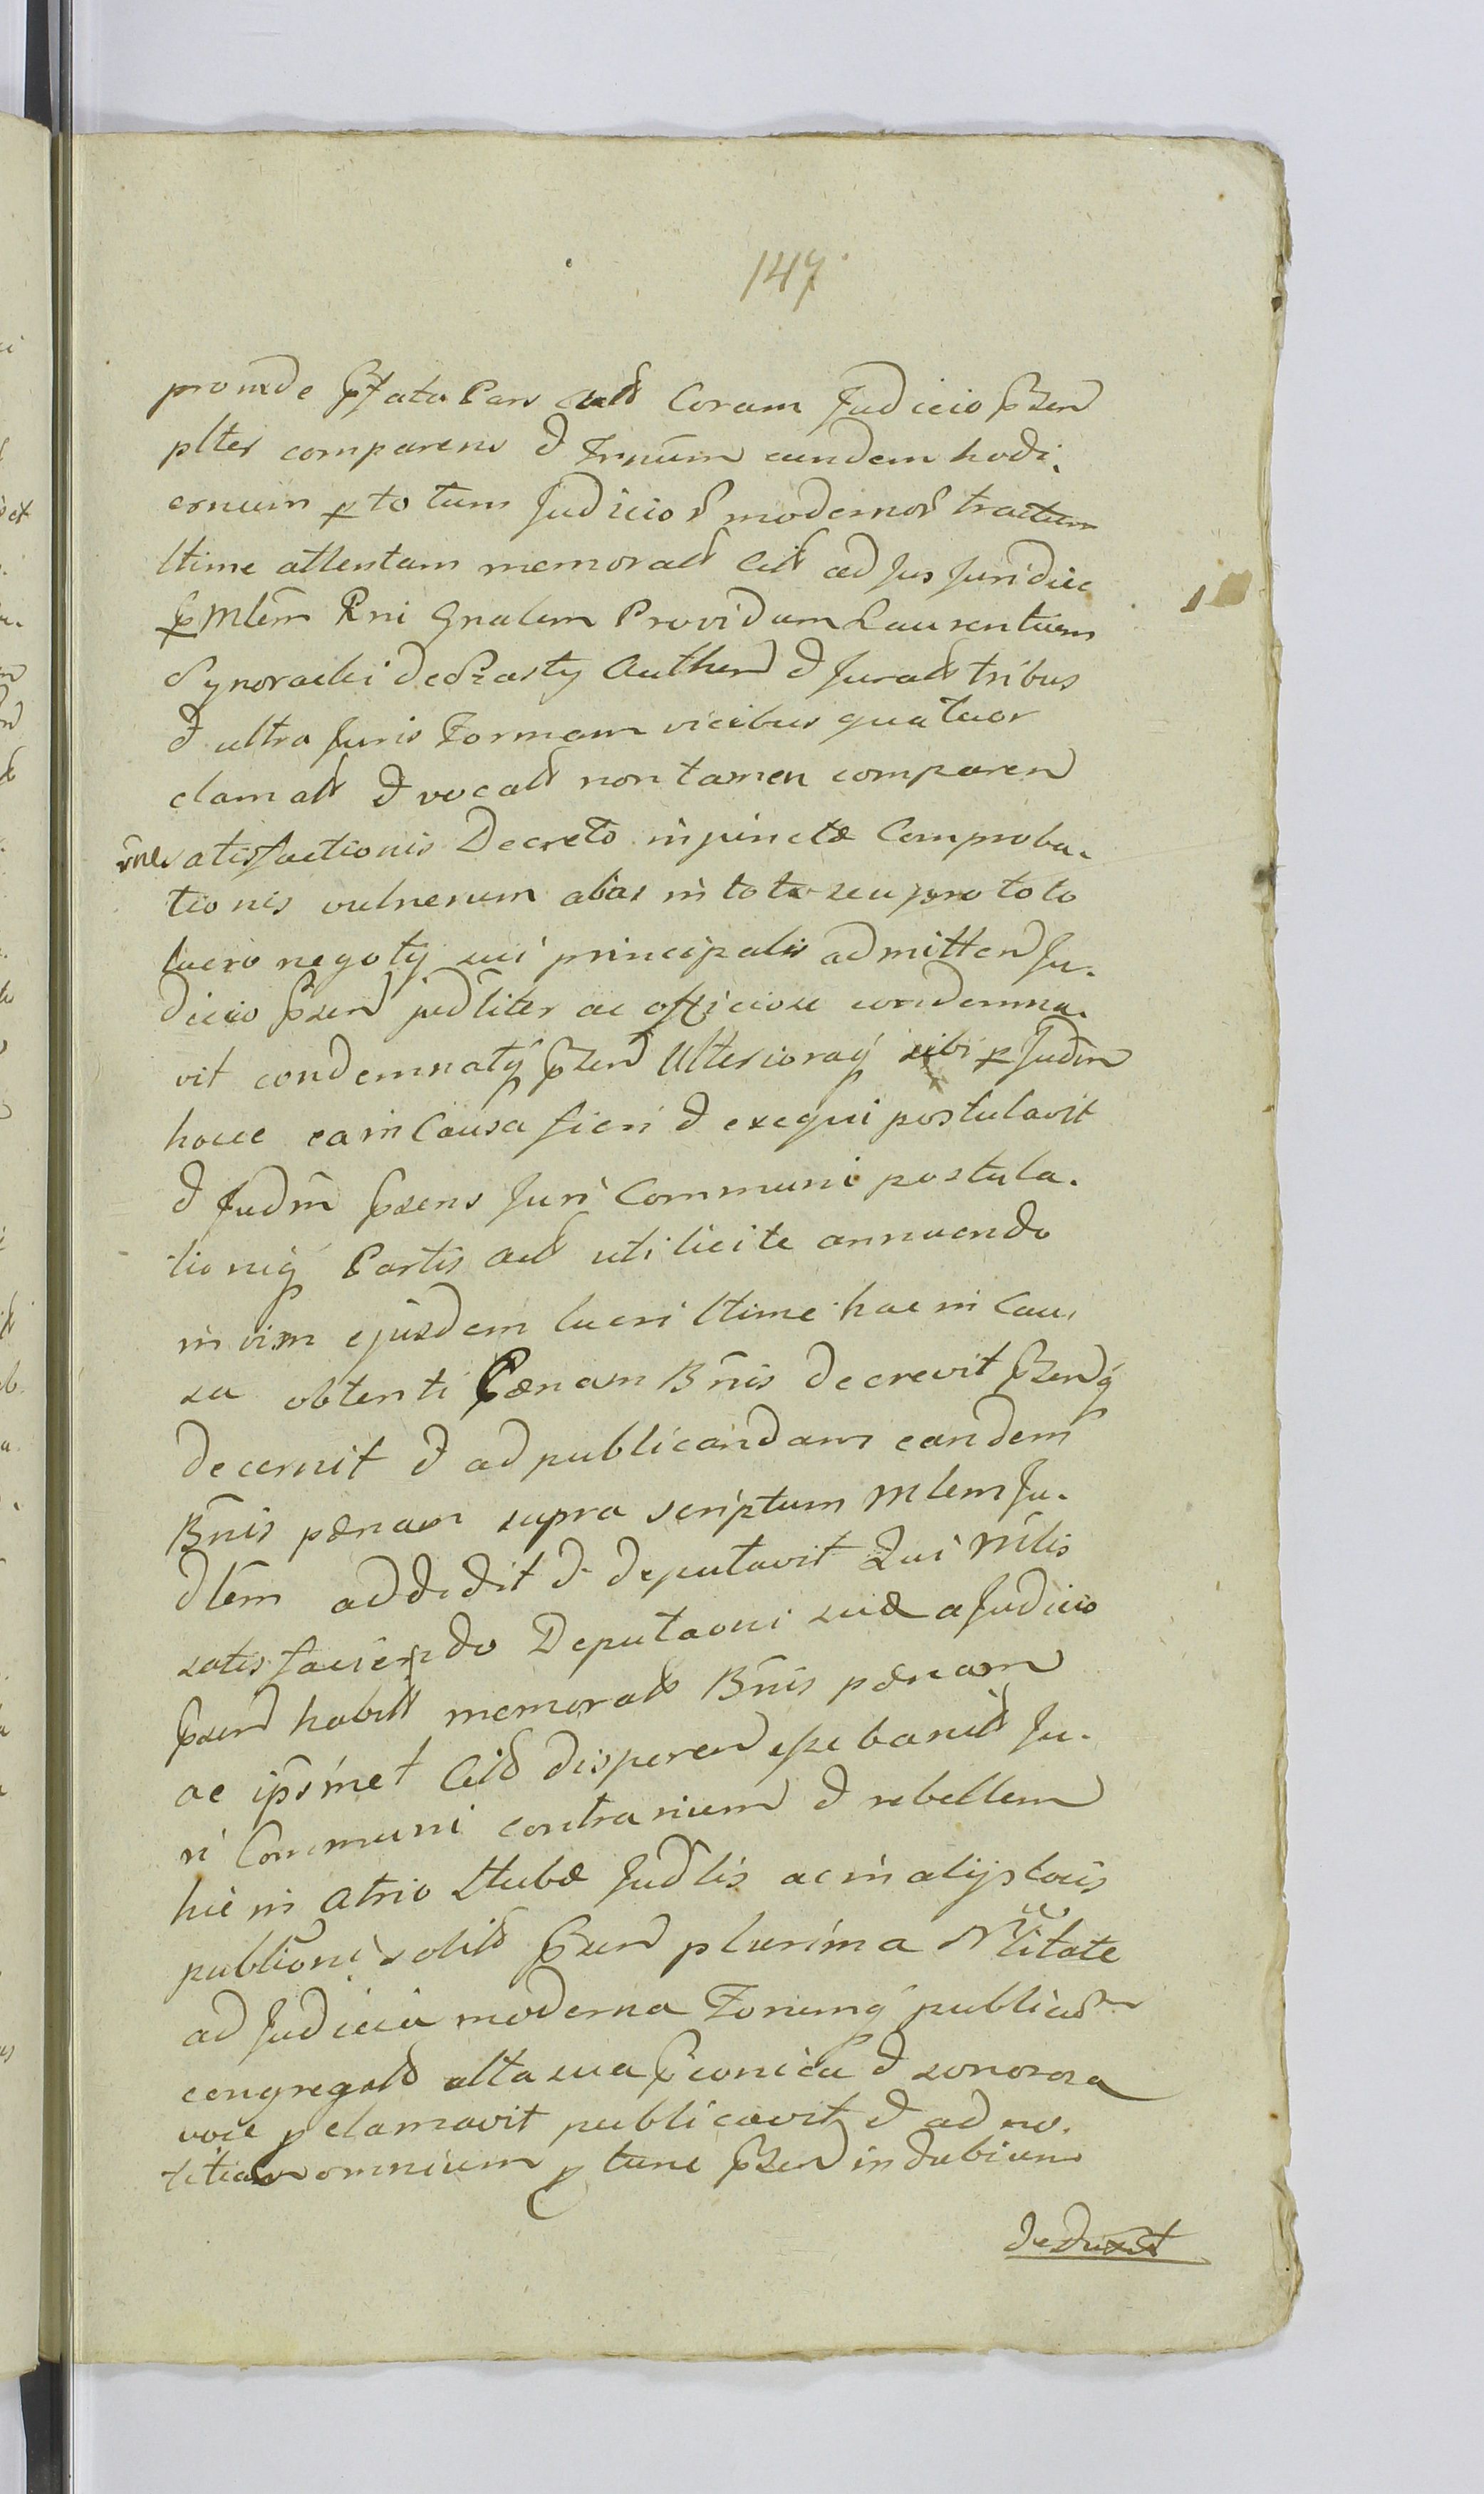 147
proinde pfata Pars Act Coram Judicio pzen
plter comparens et Trnum eundem hodi.
ernum p totum Judicior modernor tractum
ltime attentam memorat Cit ad Jus Juridice
p Mlem Rni Gnalem Providum Laurentium
Synoracki de Piasty Authen et Jurat tribus
et ultra Juris Formam vicibus quatuor
clamat et vocat non tamen comparen
satisfactionis Decreto injunctæ Comproba.
tionis vulnerum alias in toto seu pro toto
lucro negotÿ sui principalis admitten Ju.
dicio pzen judliter ac officiose condemna.
vit condemnatq pzen Ulterioraq sibi p Judm
hocce ea in Causa fieri et exequi postulavit
et Judm pzens Juri Communi postula.
tioniq Partis Act uti licite annuendo
in vim ejusdem lucri ltime hac in Cau.
sa obtenti Pænam Bnis decrevit pzenq
decernit et ad publicandam eandem
Bnis pænam supra scriptum Mlem Ju.
dlem addidit et deputavit Qui Mlis
satisfaciendo Deputaoni suæ a Judicio
pzen habit memorat Bnis pænam
ac ipsmet Cit disparen esse banit Ju.
ri Communi contrarium et rebellem
hic in Atrio Stubæ Judlis ac in alijs locis
publioni solit pzen plurima Nlitate
ad Judicia moderna Forumq publicum
congregat alta sua pconica et sonorosa
voce pclamavit publicavit et ad no.
titiam omnium p tunc pzen indubium
deduxit